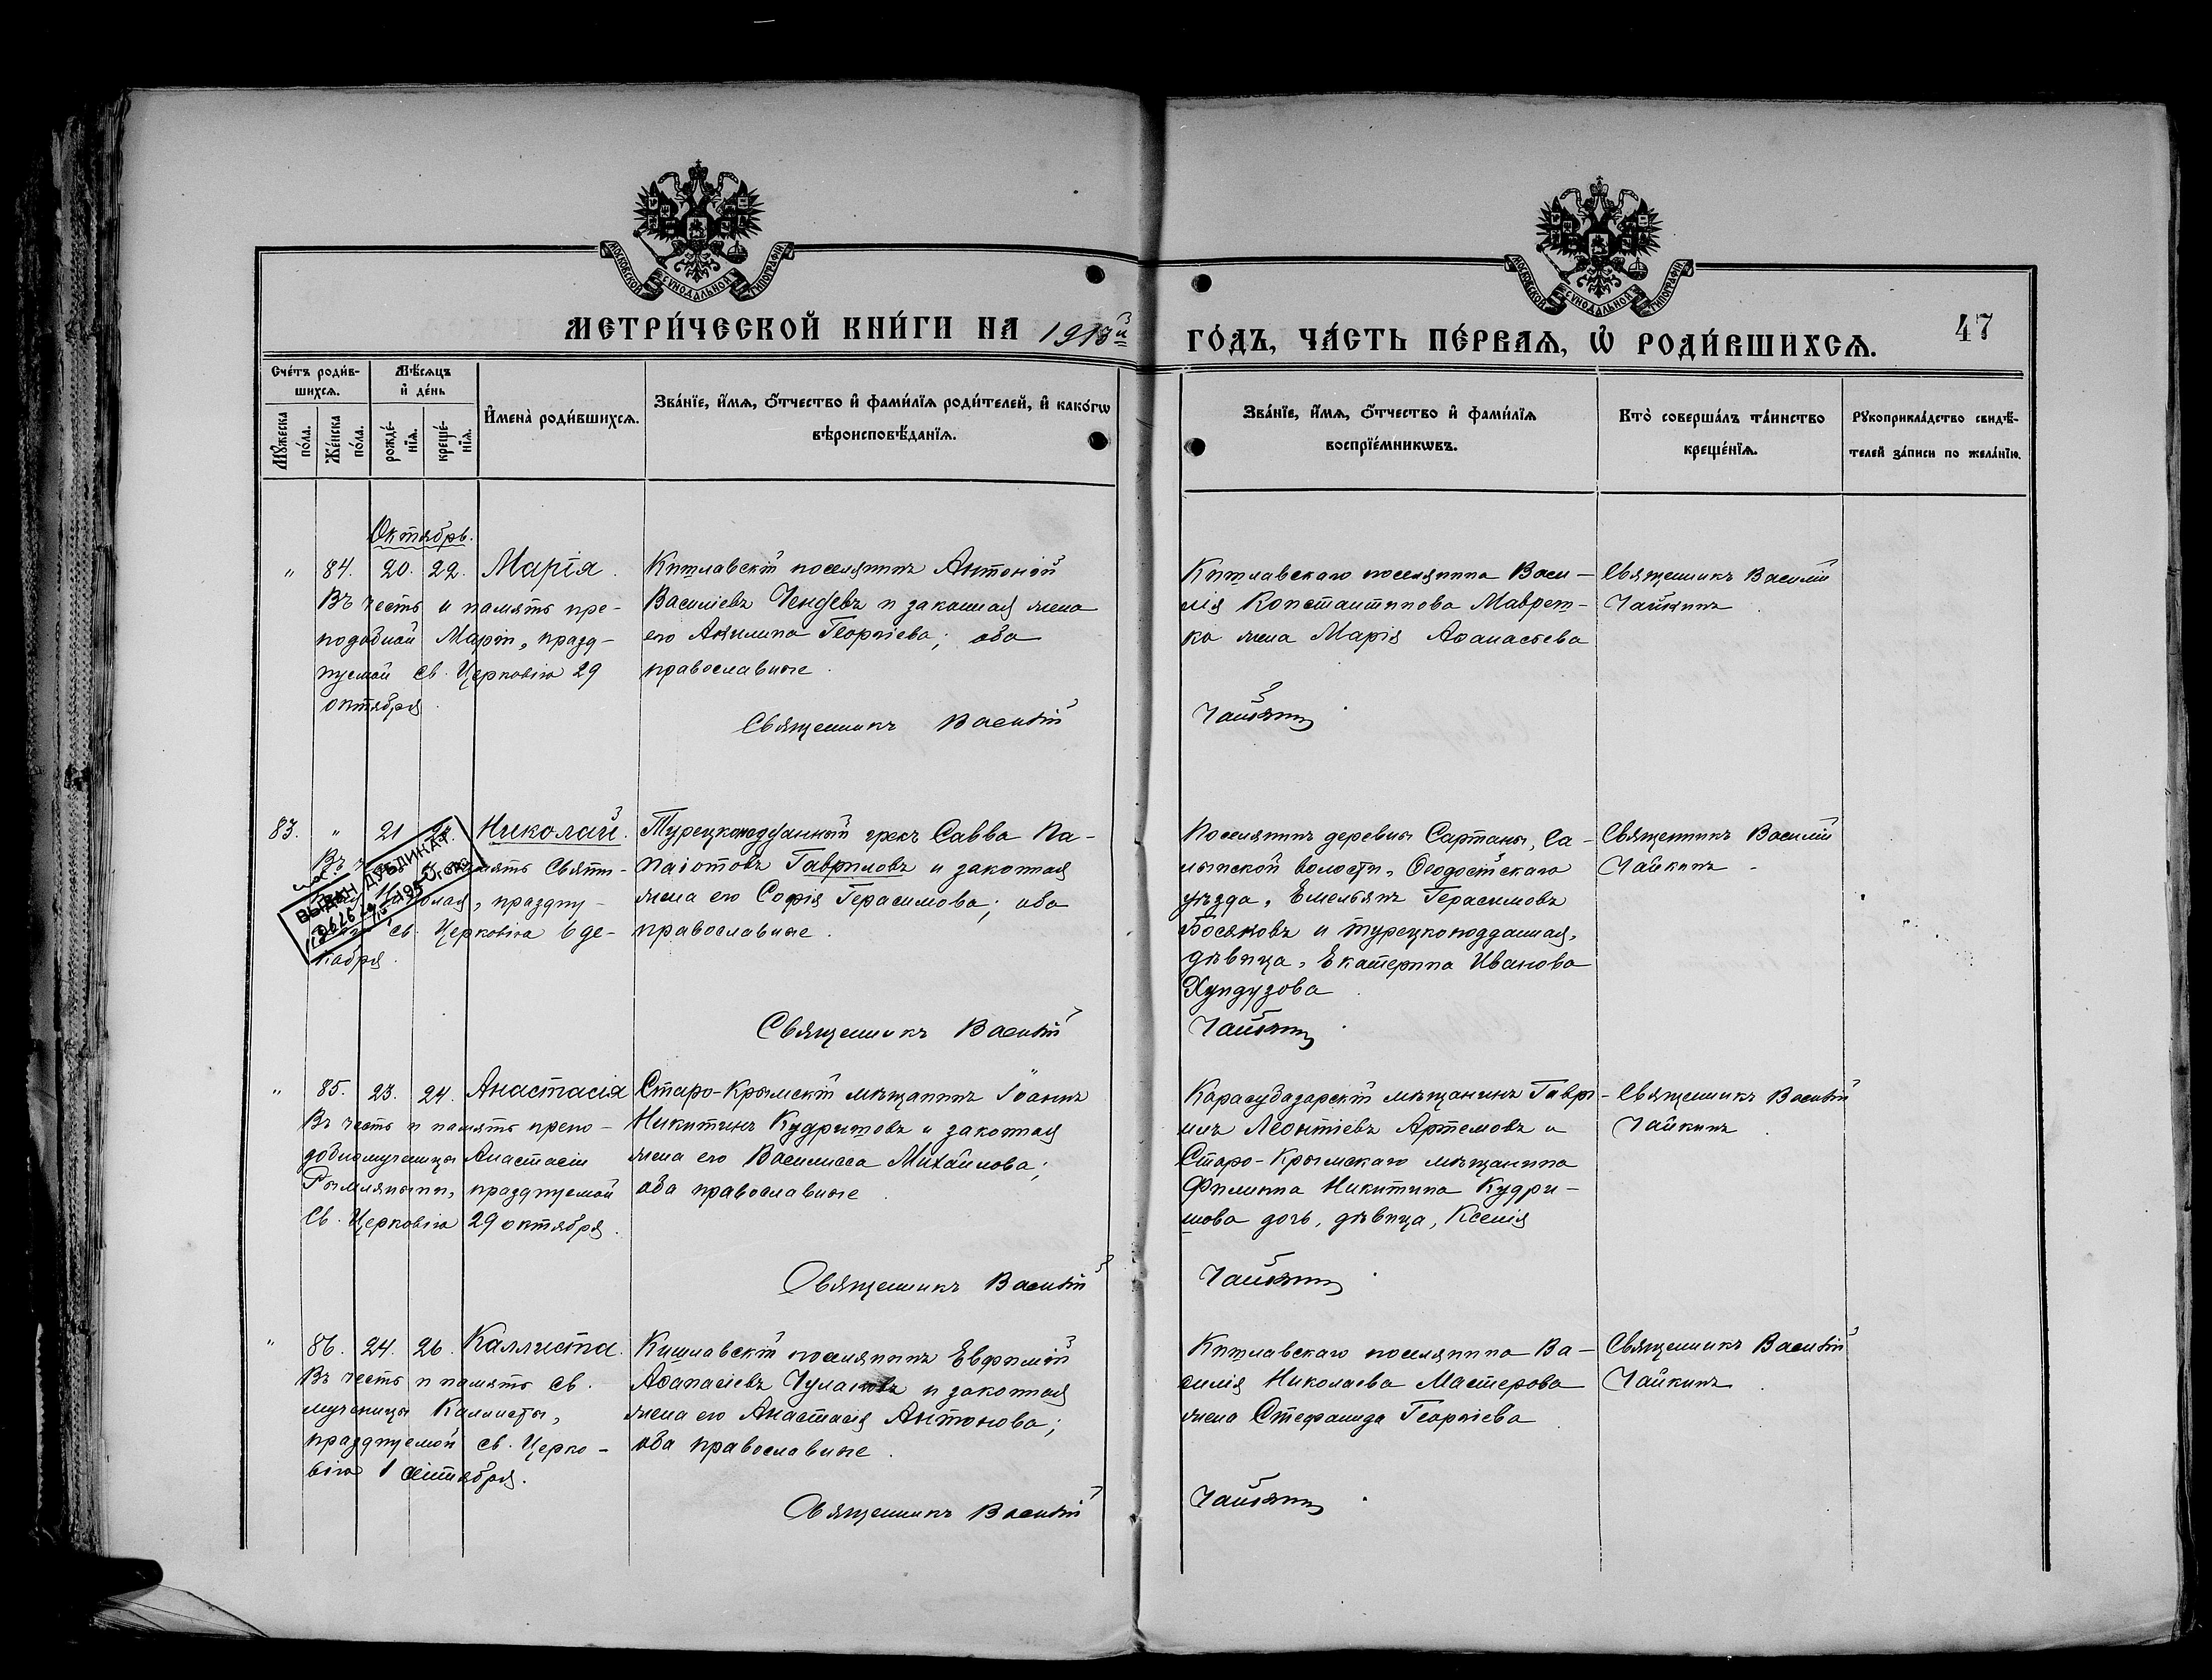 МОСКОВСКОЙ СУНОДАЛЬНОЙ ТИПОГРАФІИ.
МОСКОВСКОЙ СУНОДАЛЬНОЙ ТИПОГРАФІИ.
МЕТРИ́ЧЕСКОЙ КНИ́ГИ НА 1913й ГО́ДЪ, ЧА́СТЬ ПЕ́РВАѦ, Ѡ҆ РОДИ́ВШИХСѦ.
47
Сче́тъ роди́в-
шихсѧ.
Мꙋ́жеска по́ла.
Же́нска по́ла.
Мѣ́сѧцъ и҆ де́нь
рожде́-нїѧ.
креще́-нїѧ.
И҆мена̀ роди́вшихсѧ.
Зва́нїе, и҆́мѧ, ѻ҆́тчество и҆ фами́лїѧ роди́телей, и҆ како́гѡ
вѣроисповѣ́данїѧ.
Зва́нїе, и҆́мѧ, ѻ҆́тчество и҆ фами́лїѧ
воспрїе́мникѡвъ.
Кто̀ соверша́лъ та́инство
креще́нїѧ.
Рꙋкоприкла́дство свидѣ́-
телей за́писи по жела́нїю.
Октябрь.
" 84. 20. 22. Марія.
Въ честь и память пре-
подобной Маріи, празд-
нуемой св. Церковію 29
октября.
Кишлавскій поселянинъ Антоній
Василіевъ Ченгевъ и законная жена
его Акилина Георгіева; оба
православные.
Священникъ Василій
Кишлавскаго поселянина Васи-
лія Константинова Маврет-
ка жена Марія Аѳанасьева
Чайкинъ.
Священникъ Василій
Чайкинъ.
83. " 21 Николай.
память Святи-
Николая, праздну-
св. Церковію 6 де-
кабря.
ВЫДАН ДУБЛИКАТ
195 года
Турецкоподданный грекъ Савва Па-
наіотовъ Гавриловъ и законная
жена его Софія Герасимова; оба
православные.
Священникъ Василій
Поселянинъ деревни Сартаны, Са-
лынской волости, Ѳеодосійскаго
уѣзда, Емельянъ Герасимовъ
Босяковъ и турецкоподданная,
дѣвица, Екатерина Иванова
Хундузова.
Чайкинъ.
Священникъ Василій
Чайкинъ.
" 85. 23. 24. Анастасія
Въ честь и память препо-
добномученицы Анастасіи
Римляныни, празднуемой
Св. Церковію 29 октября.
Старо-Крымскій мѣщанинъ Іоаннъ
Никитинъ Кудришовъ и законная
жена его Василисса Михайлова;
оба православные.
Священникъ Василій
Карасубазарскій мѣщанинъ Гаврі-
илъ Леонтіевъ Артемовъ и
Старо-Крымскаго мѣщанина
Филиппа Никитина Кудри-
шова дочь, дѣвица, Ксенія
Чайкинъ.
Священникъ Василій
Чайкинъ.
" 86. 24. 26. Каллиста.
Въ честь и память св.
мученицы Каллисты,
празднуемой св. Церко-
вію 1 сентября.
Кишлавскій поселянинъ Евфимій
Аѳанасіевъ Чулаковъ и законная
жена его Анастасія Антонова;
оба православные.
Священникъ Василій
Кишлавскаго поселянина Ва-
силія Николаева Мастерова
жена Стефанида Георгіева
Чайкинъ.
Священникъ Василій
Чайкинъ.